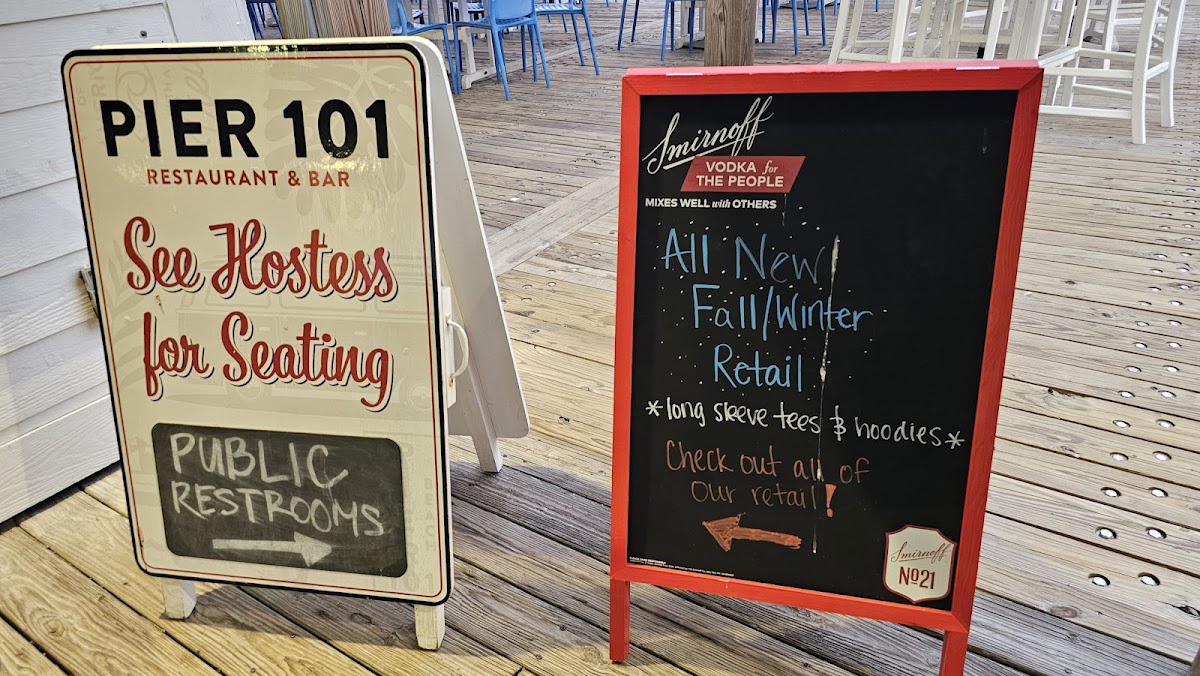 PIER 101
RESTAURANT & BAR
See Hostess
for Seating
PUBLIC
RESTROOMS
Smirnoff
VODKA for
THE PEOPLE
MIXES WELL with OTHERS
All New
Fall/Winter
Retail
*long sleeve tees & hoodies*
Check out all of
our retail!
Smirnoff
No21